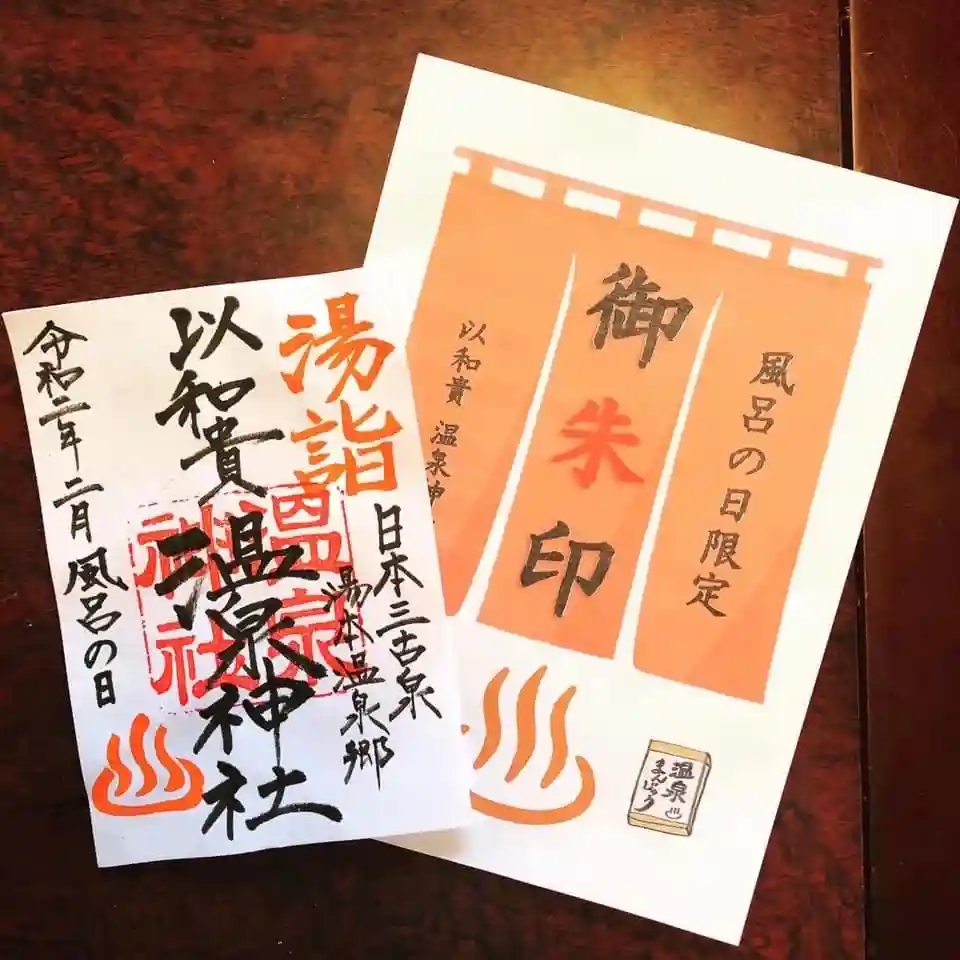 湯詣
日本三古泉
湯本温泉郷
以和貴
温泉神社
温泉
神社
令和二年二月風呂の日
風呂の日限定
御朱印
以和貴 温泉神
温泉
まんじゅう